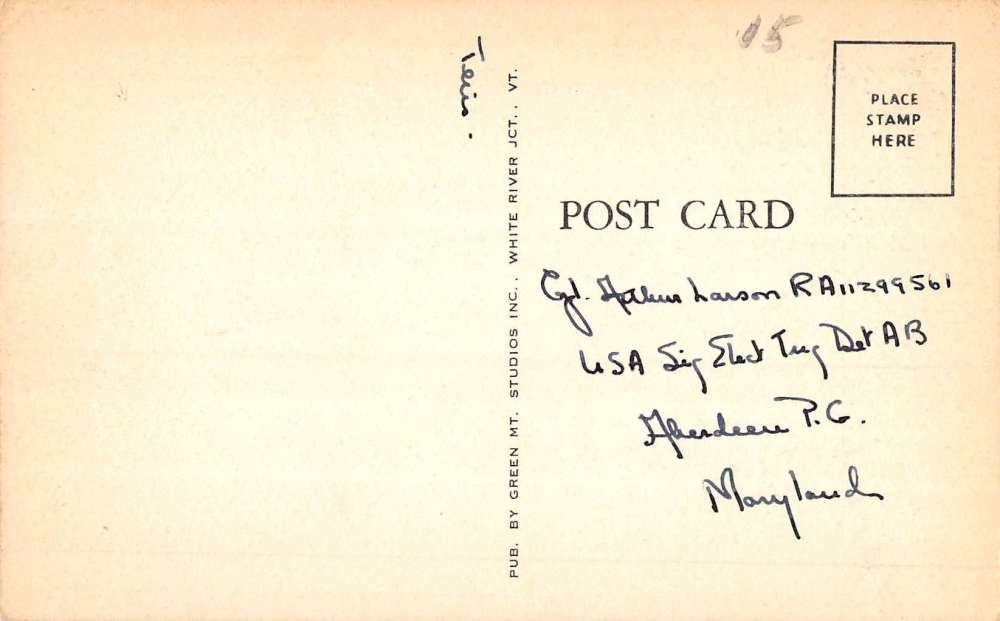 15
PLACE
STAMP
HERE
POST CARD
Cpl. Arthur Larson RA11299561
USA Sig Elect Tng Det AB
Aberdeen P.G.
Maryland
PUB. BY GREEN MT. STUDIOS INC., WHITE RIVER JCT., VT.